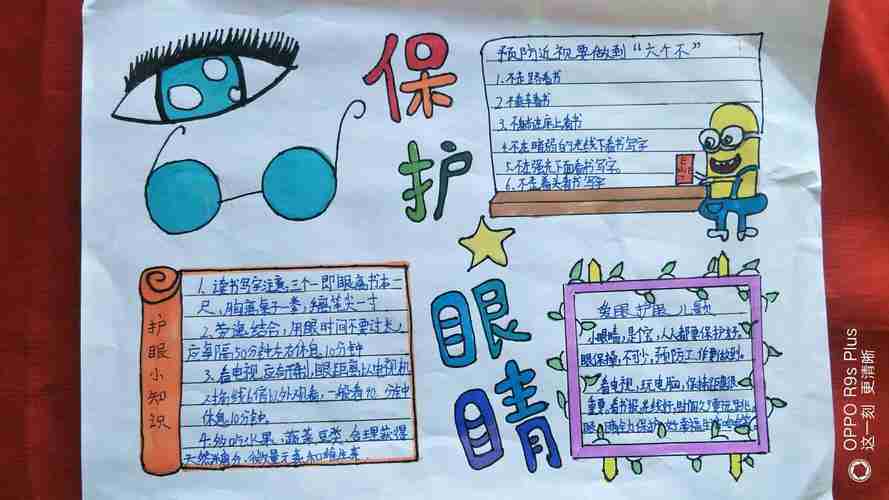 保护眼睛
预防近视要做到“六个不”
1.不走路看书
2.不乘车看书
3.不躺在床上看书
4.不在暗弱的光线下看书写字
5.不在强光下面看书写字。
6.不
看书写字
护眼小知识
1.读书写字注意三个一即眼离书本一
尺,胸离桌子一拳,
笔尖一寸
2.劳逸结合,用眼时间不要过长,
应每隔50分钟左右休息10分钟
3.看电视
眼距离以电视机
对角线
倍以外观看,一般看
分钟
休息10分钟。
4.多吃水果、蔬菜豆类,合理获得
天然
微量元素和维生素
爱眼护眼儿歌
小眼睛,是个宝,人人都要保护好。
眼保操,不可少,预防工作要做到。
看电视,玩电脑,保持距离很
重要。看书报,光线好,时间久了
保护好
OPPO R9s Plus
这一刻 更清晰